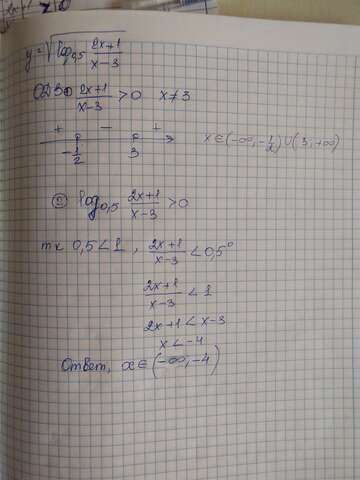 y=√(log₀,₅ (2x+1)/(x-3))
ОДЗ ① (2x+1)/(x-3) > 0 x≠3
+ - +
-1/2 3 x∈(-∞,-1/2)∪(3,+∞)
② log₀,₅ (2x+1)/(x-3) >0
тк 0,5<1, (2x+1)/(x-3) < 0,5⁰
(2x+1)/(x-3) < 1
2x+1 < x-3
x < -4
Ответ, x∈(-∞,-4)